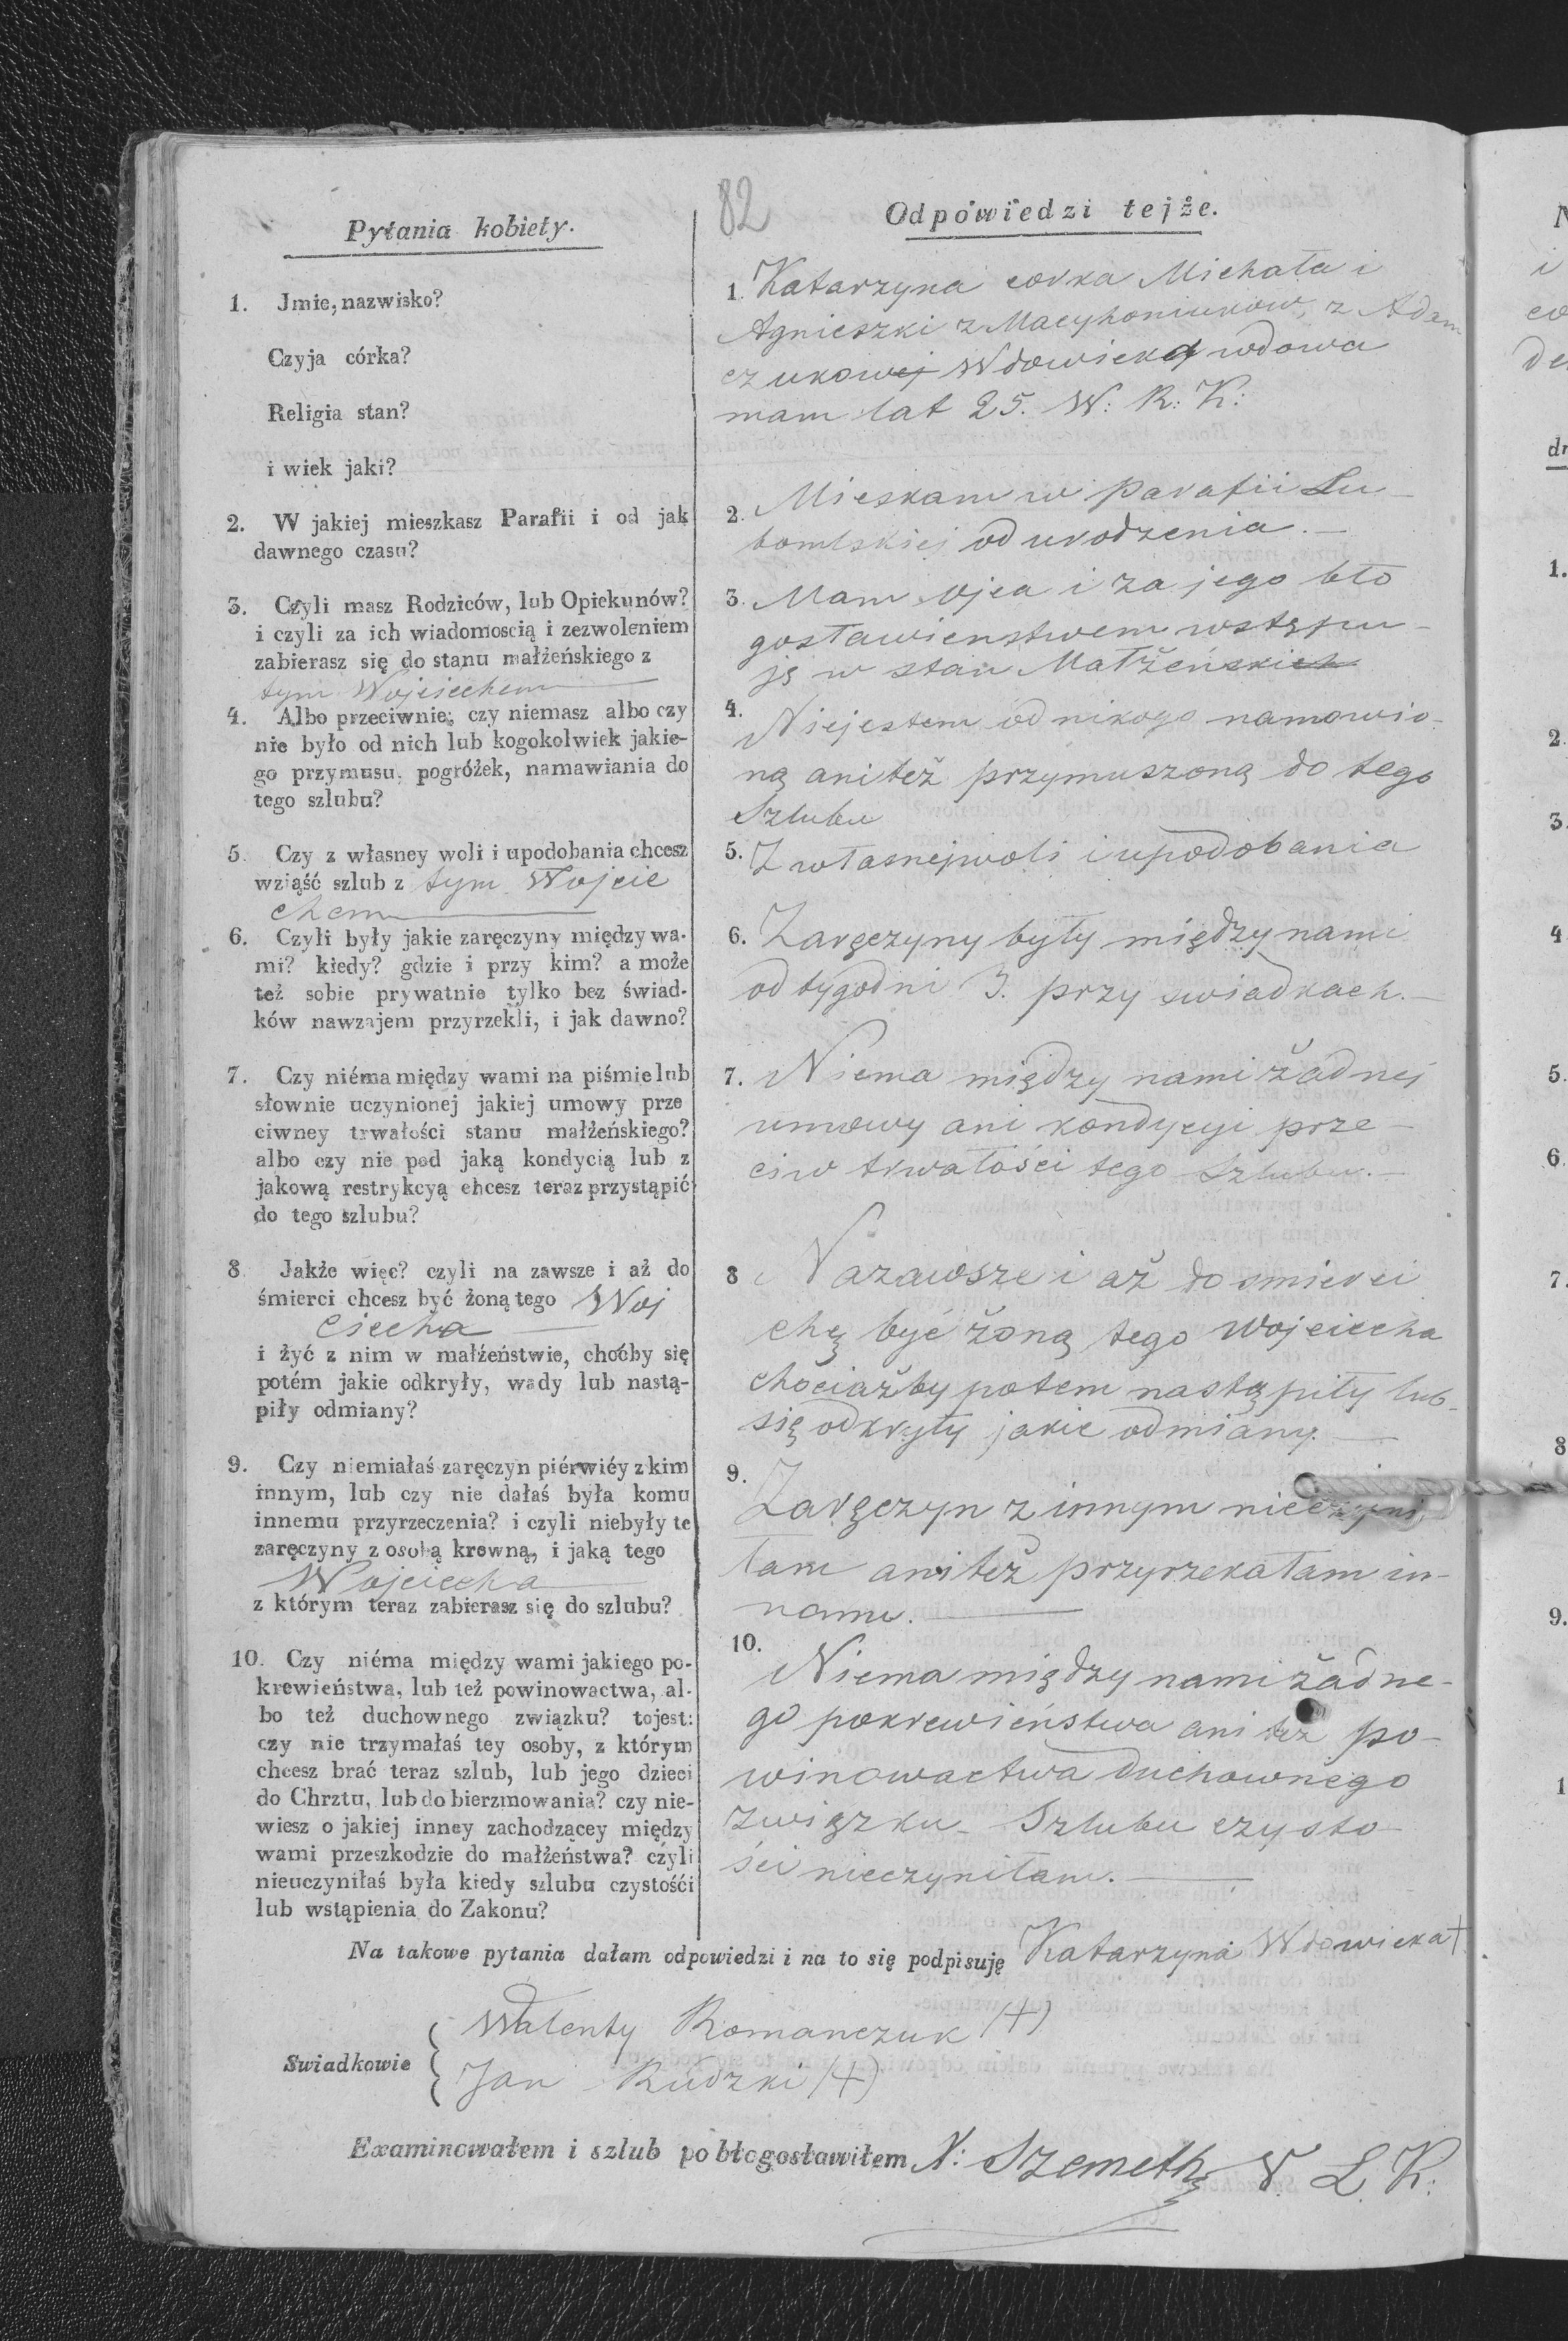 82
Pytania kobiety.
1. Jmie, nazwisko?
Czyja córka?
Religia stan?
i wiek jaki?
2. W jakiej mieszkasz Parafii i od jak
dawnego czasu?
3. Czyli masz Rodziców, lub Opiekunów?
i czyli za ich wiadomoscią i zezwoleniem
zabierasz się do stanu małżeńskiego z
tym Wojciechem
4. Albo przeciwnie; czy niemasz albo czy
nie było od nich lub kogokolwiek jakie-
go przymusu, pogróżek, namawiania do
tego szlubu?
5. Czy z własney woli i upodobania chcesz
wziąść szlub z tym Wojcie
chem
6. Czyli były jakie zaręczyny między wa-
mi? kiedy? gdzie i przy kim? a może
też sobie prywatnie tylko bez świad-
ków nawzajem przyrzekli, i jak dawno?
7. Czy niéma między wami na piśmie lub
słownie uczynionej jakiej umowy prze
ciwney trwałości stanu małżeńskiego?
albo czy nie pod jaką kondycią lub z
jakową restrykcyą chcesz teraz przystąpić
do tego szlubu?
8. Jakże więc? czyli na zawsze i aż do
śmierci chcesz być żoną tego Woj
ciecha
i żyć z nim w małżeństwie, choćby się
potém jakie odkryły, wady lub nastą-
piły odmiany?
9. Czy niemiałaś zaręczyn piérwiéy z kim
innym, lub czy nie dałaś była komu
innemu przyrzeczenia? i czyli niebyły te
zaręczyny z osobą krewną, i jaką tego
Wojciecha
z którym teraz zabierasz się do szlubu?
10. Czy niéma między wami jakiego po-
krewieństwa, lub też powinowactwa, al-
bo też duchownego związku? tojest:
czy nie trzymałaś tey osoby, z którym
chcesz brać teraz szlub, lub jego dzieci
do Chrztu, lub do bierzmowania? czy nie-
wiesz o jakiej inney zachodzącey między
wami przeszkodzie do małżeństwa? czyli
nieuczyniłaś była kiedy szlubu czystośći
lub wstąpienia do Zakonu?
Odpowiedzi tejże.
1. Katarzyna corka Michała i
Agnieszki z Macyhoniukow, z Adam
czukowej Wdowicka wdowa
mam lat 25. W: R: K:
2. Mieskam w parafii Lu-
bomlskiej od urodzenia.-
3. Mam ojca i za jego bło
gosławienstwem wstępu-
ję w stan Małżeńskich
4. Niejestem od nikogo namowio-
ną aniteż przymuszoną do tego
Szlubu
5. Z własnejwoli i upodobania
6. Zaręczyny były między nami
od tygodni 3. przy swiadkach.-
7. Niema między nami żadnej
umowy ani kondycyi prze-
ciw trwałości tego Szlubu.-
8 Nazawsze i aż do smierci
chę być żoną tego Wojciecha
chociażby potem nastąpiły lub-
się odkryły jakie odmiany.-
9. Zaręczyn z innym nieczyni
łam aniteż przyrzekałam in-
nemu.
10. Niema między nami żadne-
go pokrewieństwa ani też po-
winowactwa duchownego
związku- Szlubu czysto-
ści nieczyniłam.
Na takowe pytania dałam odpowiedzi i na to się podpisuję Katarzyna Wdowicka †
Swiadkowie
Walenty Romanczuk (+)
Jan Rudzki (+)
Examinowałem i szlub pobłogosławiłem X: Szemeth W. L. K:
1.
2.
3.
4
5.
6.
7.
8
9.
1